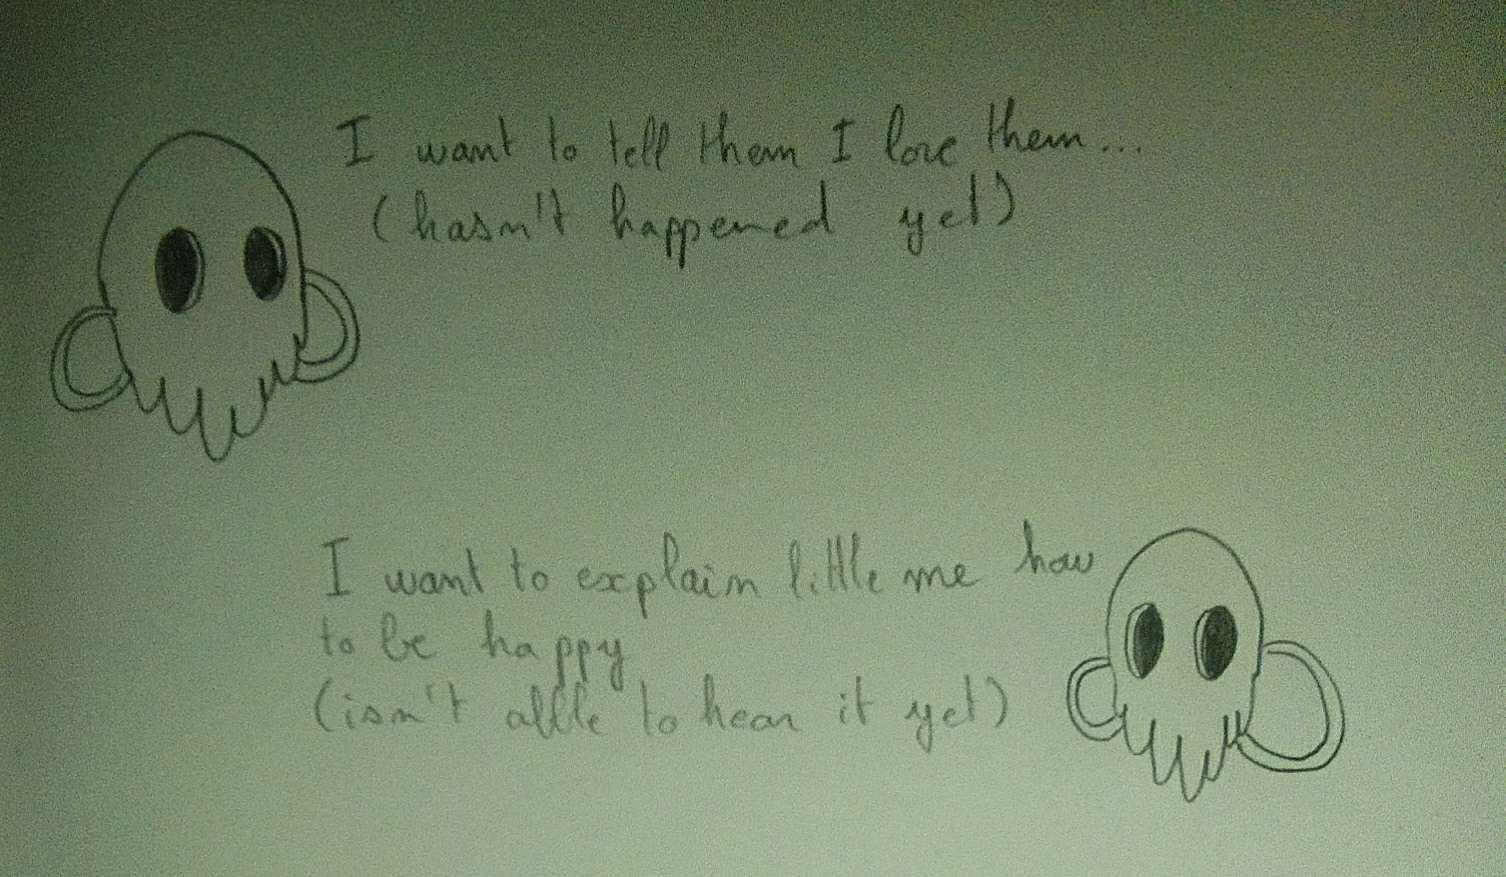 I want to tell them I love them...
(hasn't happened yet)
I want to explain little me how
to be happy
(isn't able to hear it yet)